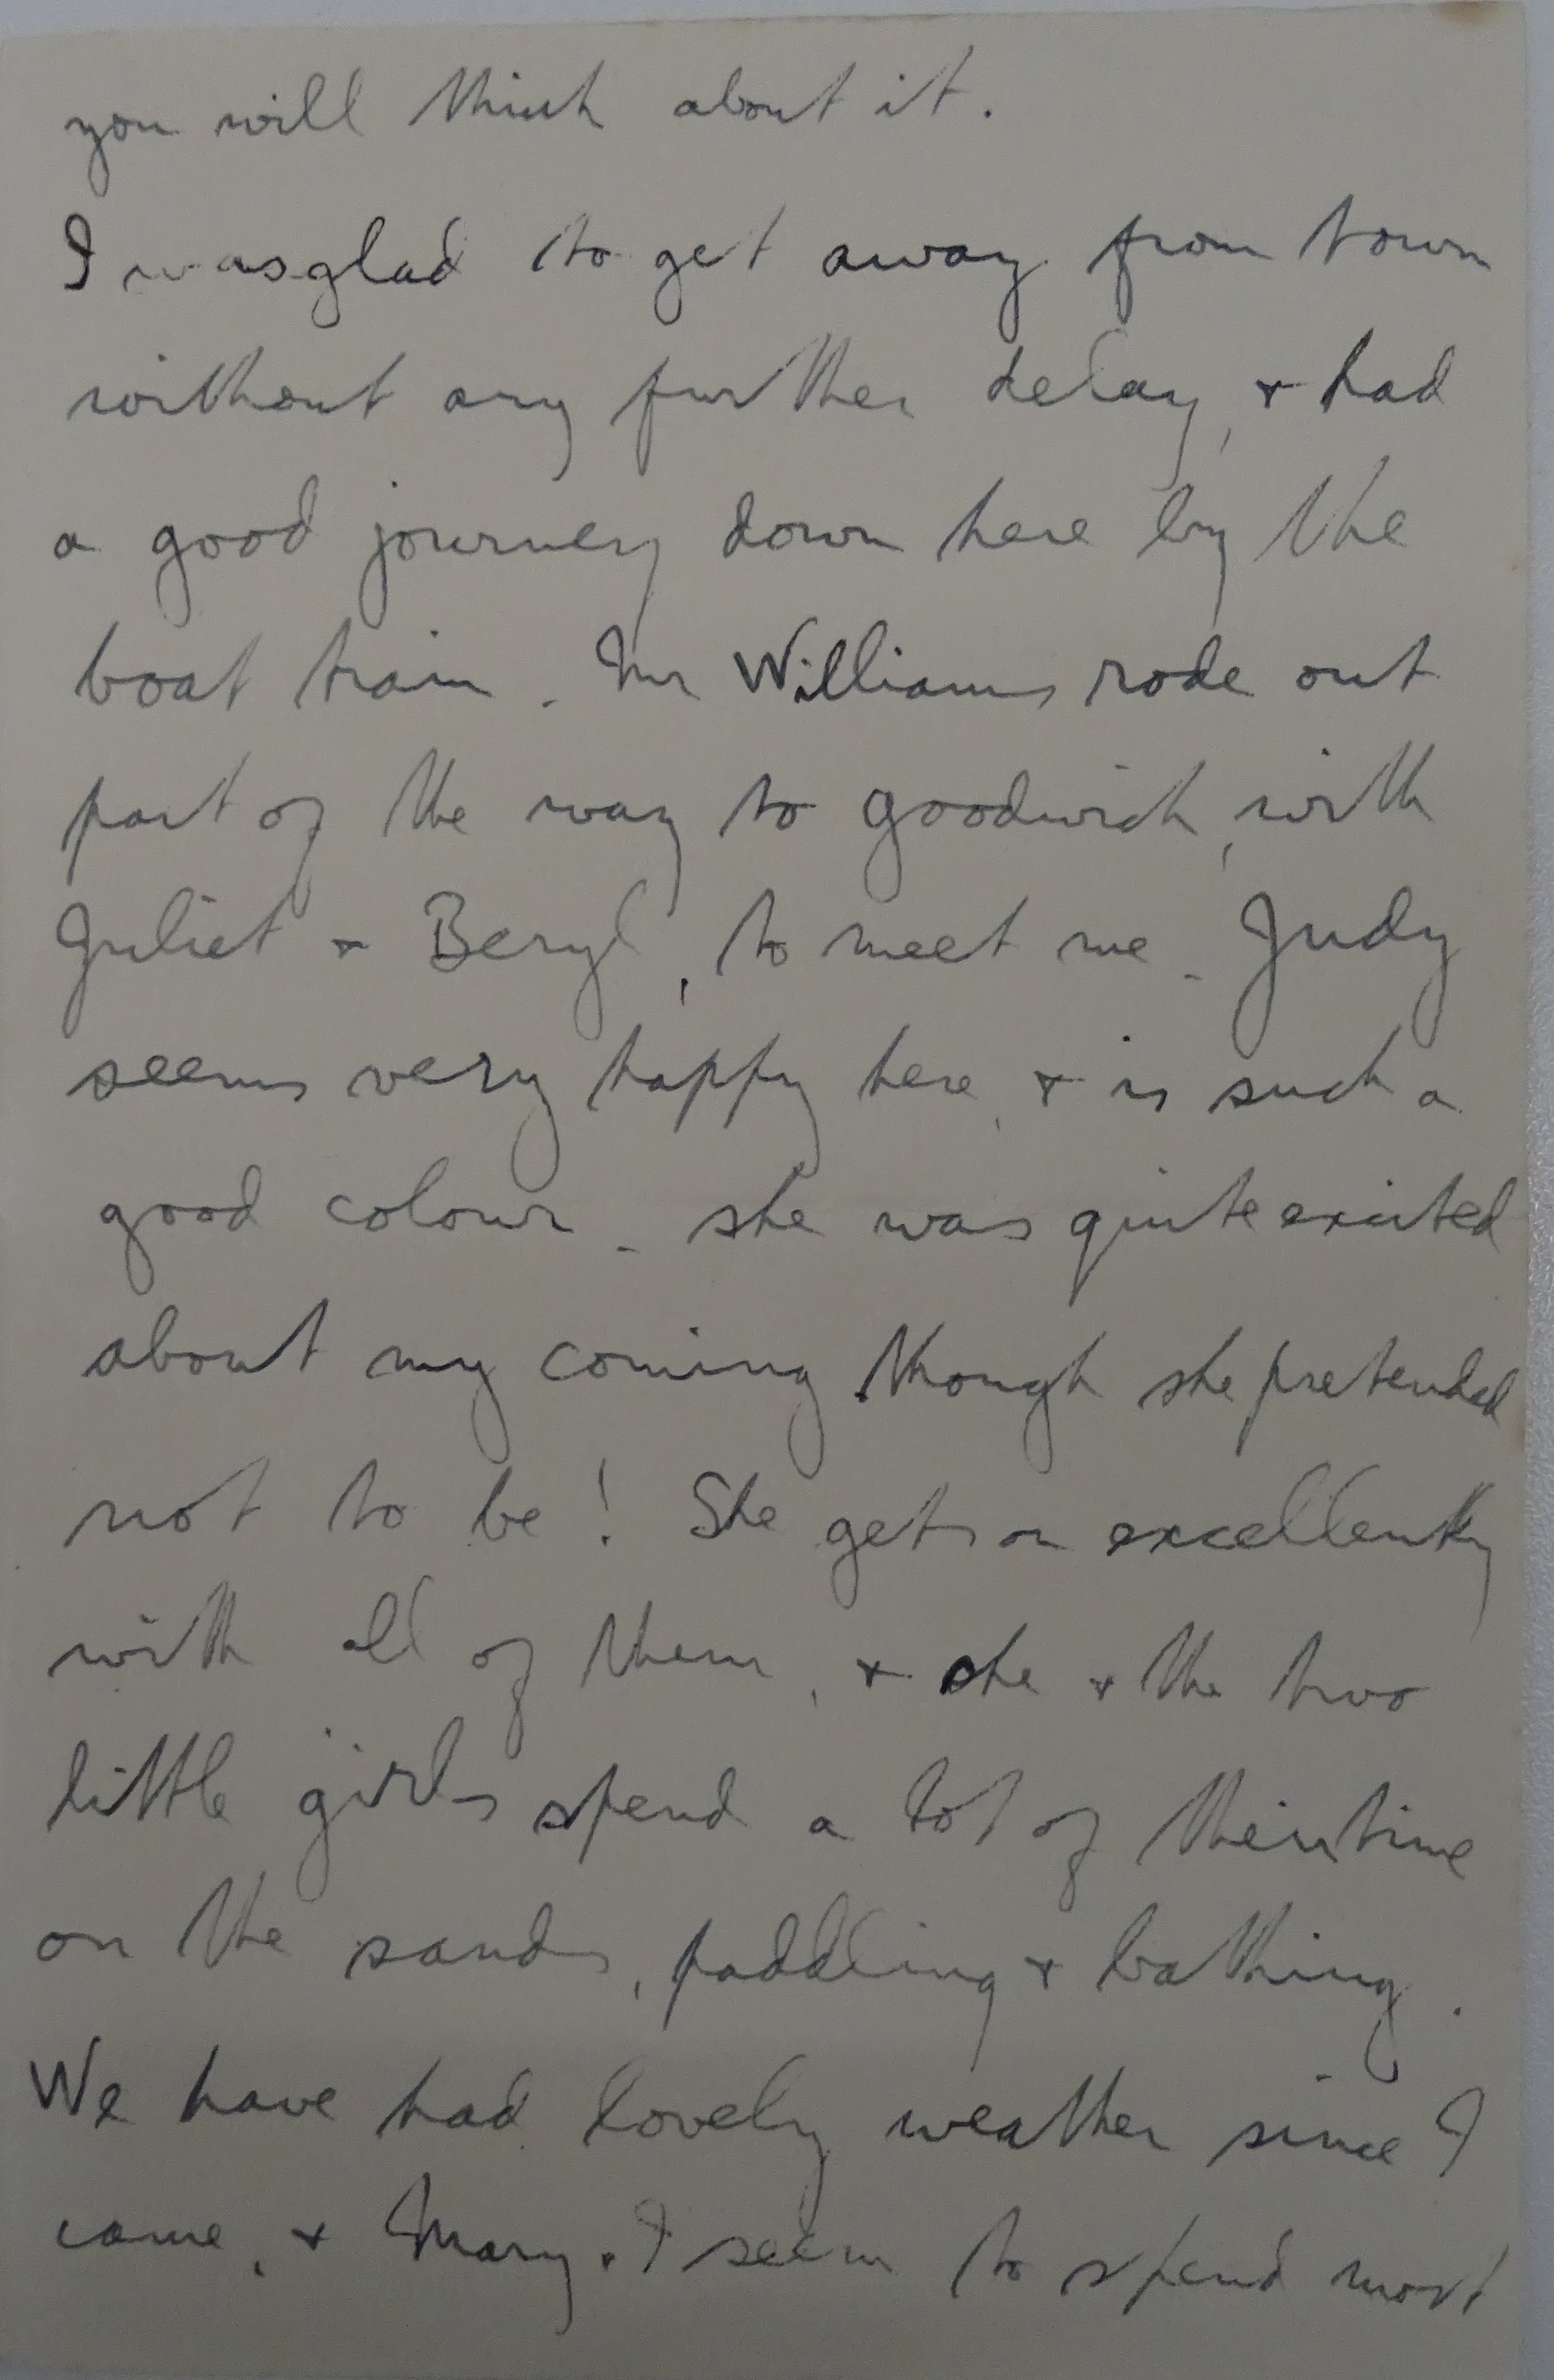 you will think about it.
I was glad to get away from town
without any further delay, & had
a good journey down here by the
boat train. Mr Williams rode out
part of the way to Goodwick, with
Juliet & Beryl, to meet me. Judy
seems very happy here, & is such a
good colour. she was quite excited
about my coming though she pretended
not to be! She gets on excellently
with all of them, & she & the two
little girls spend a lot of their time
on the sands, paddling & bathing.
We have had lovely weather since I
came, & Mary & I seem to spend most